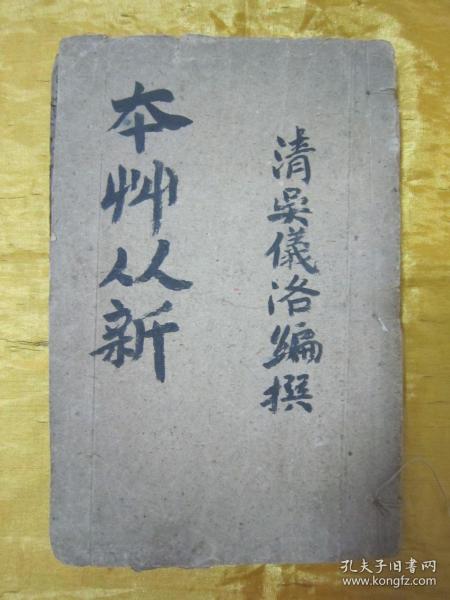 清吳儀洛編撰
本艸从新
孔夫子旧书网
www.kongfz.com